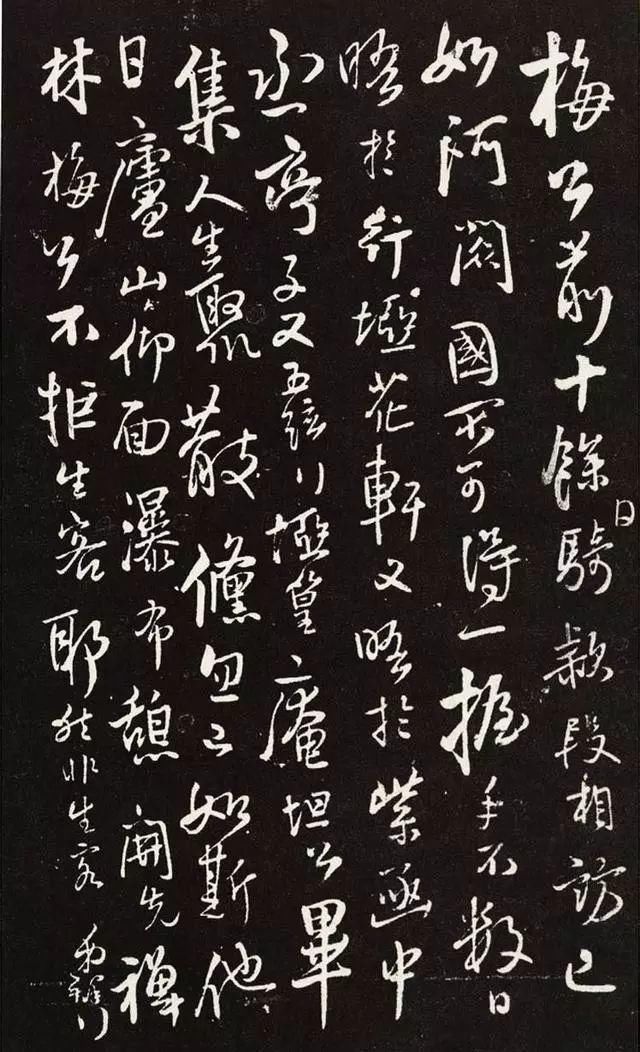 梅公前十餘日騎款段相訪已
如阿閦國不可得一握手不數日
晤於行塢花軒又晤於紫函中
丞亭子又五該塢篁庵坦公畢
集人生聚散儵忽已如斯他
日廬山仰面瀑布憩開先禪
林梅公不拒生客耶然非生客